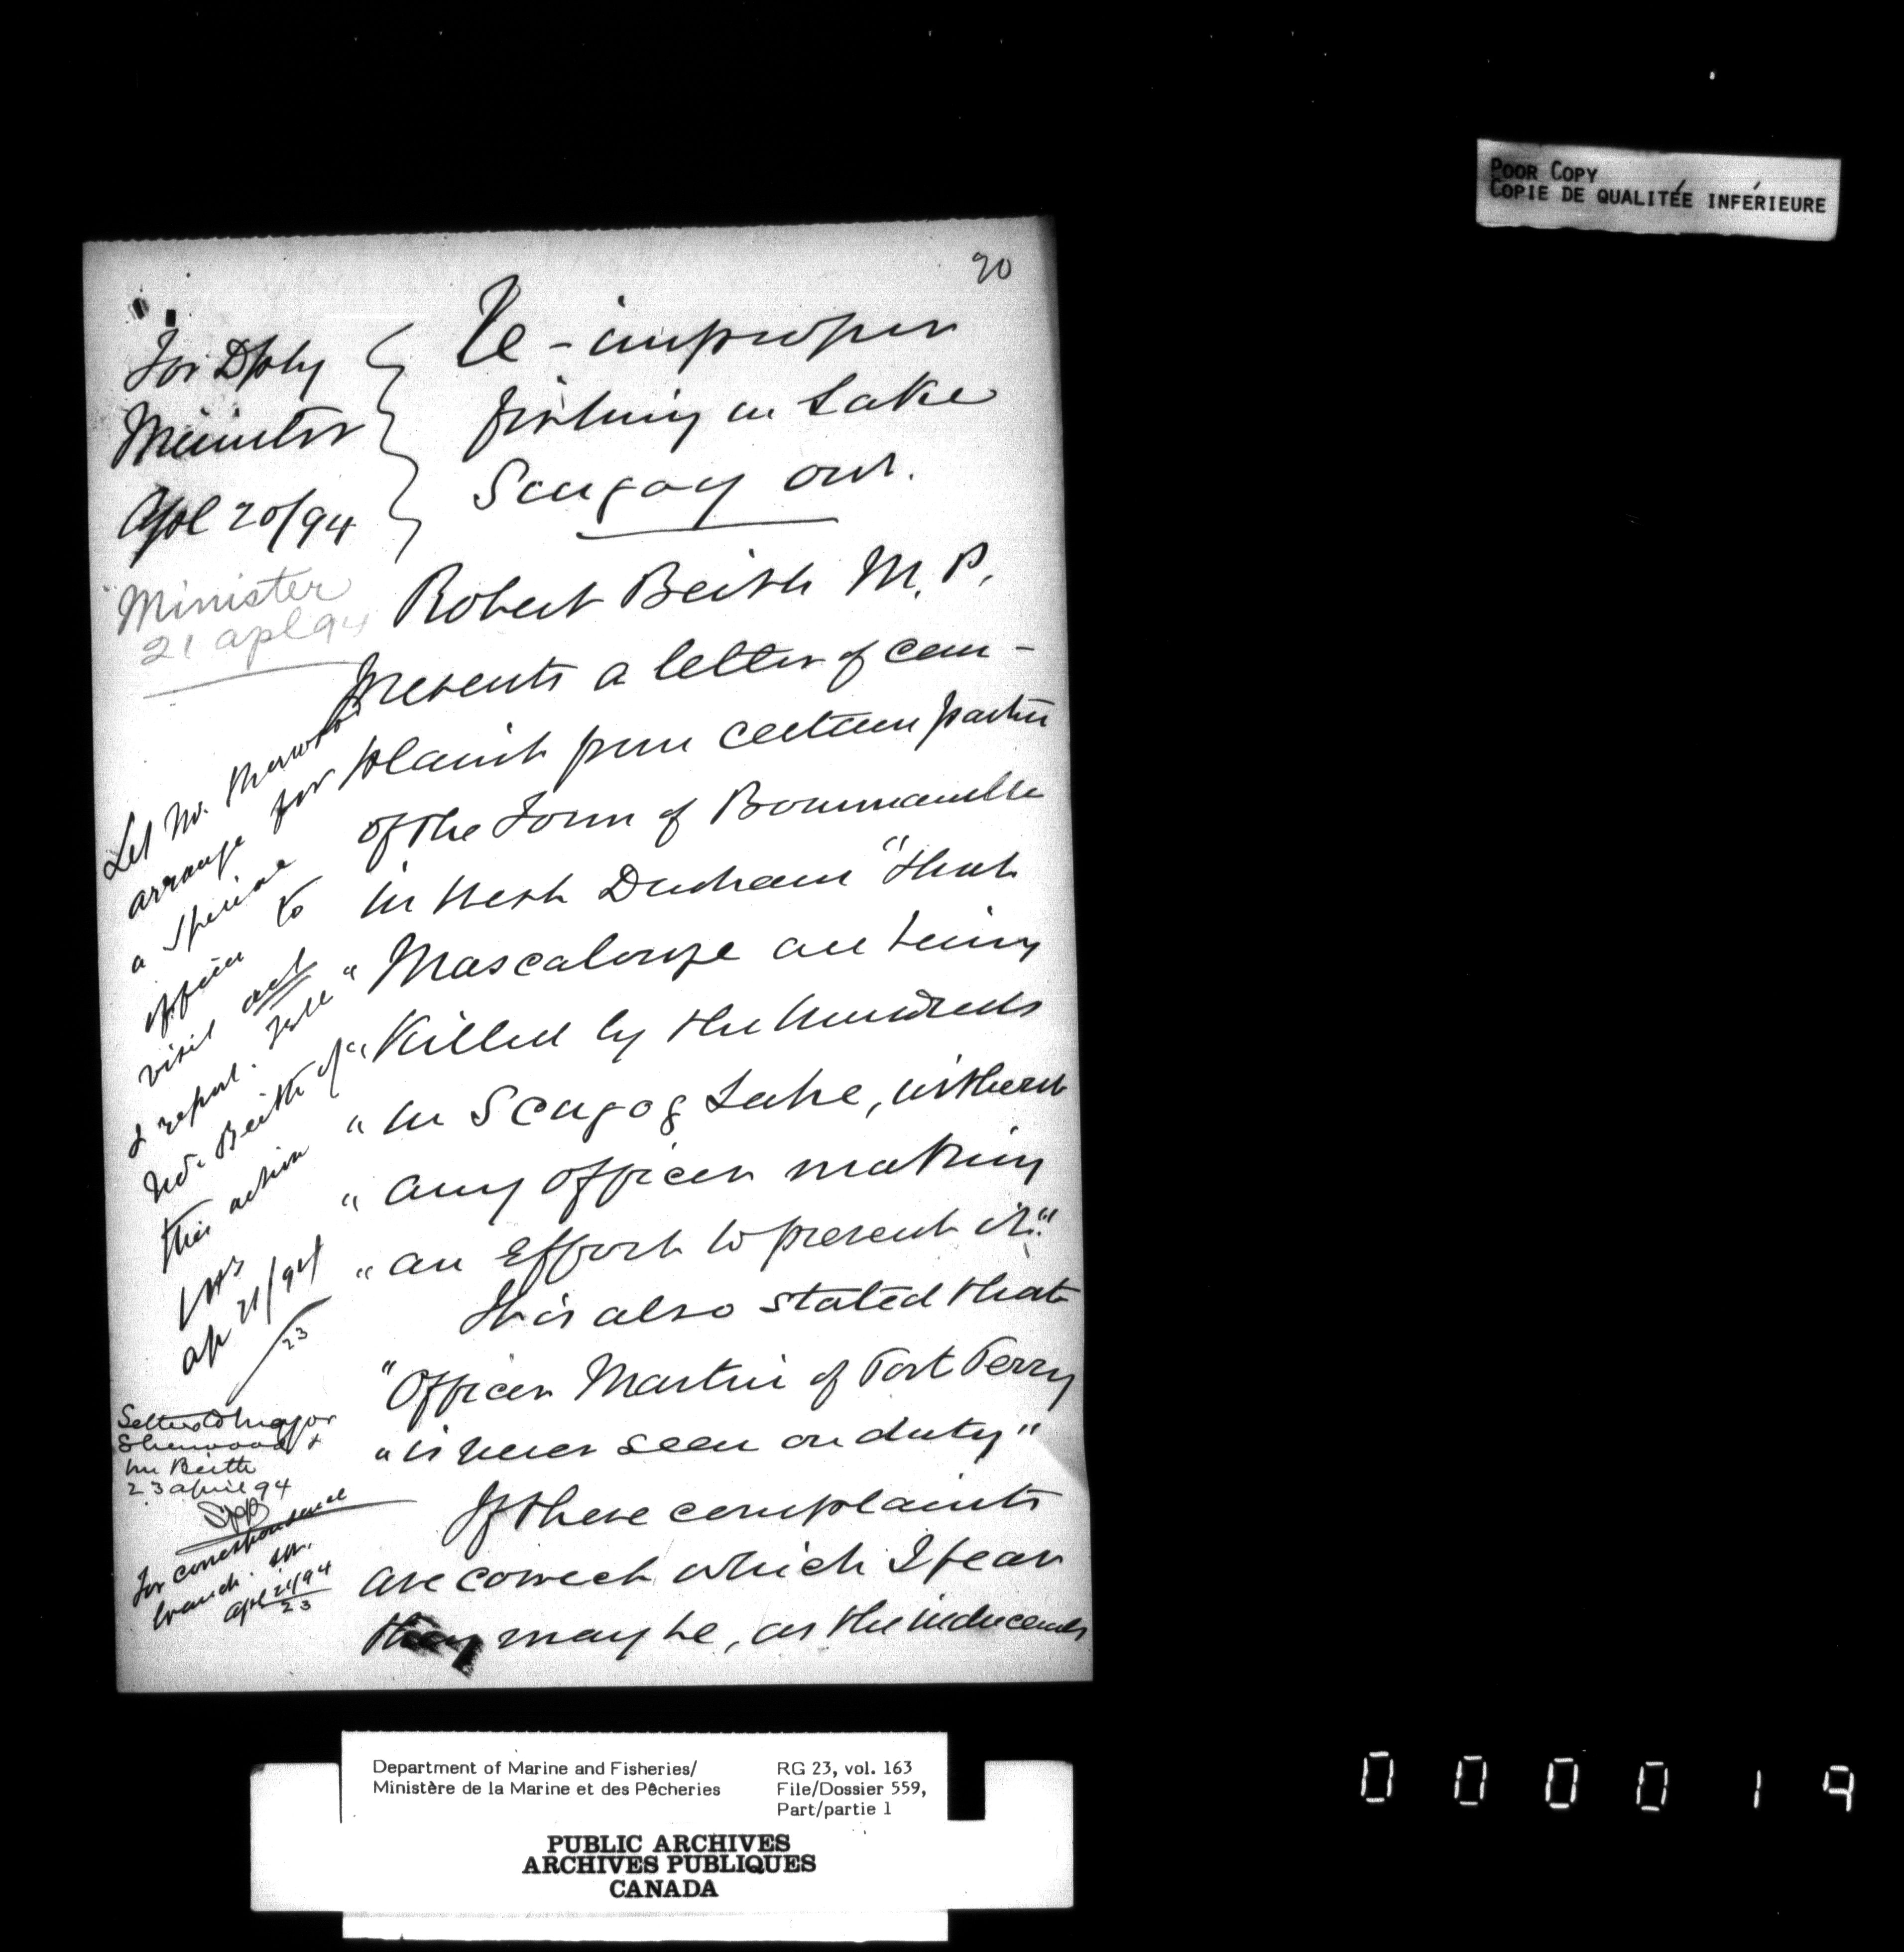 POOR COPY
COPIE DE QUALITÉE INFÉRIEURE
20
For Dpty
Minister
Apl 20/94
Re - improper
fishing in Lake
Scugog Ont.
Minister
21 apl 94
Robert Beith M.P.
presents a letter of com-
plaint from certain parties
of the Town of Bowmanville
in West Durham "that
" Mascalonge are being
" killed by the hundreds
" in Scugog Lake, without
" any officer making
" an effort to prevent it."
It is also stated that
"Officer Martin of Port Perry
" is never seen on duty"
If these complaints
are correct which I fear
they may be, as the inducements
Let Mr.
arrange for
a special
officer to
visit act
& report. Tell
Mr. Beith of
this action
Ap 21/94
23
Letters to Major
Sherwood &
Mr Beith
23 April 94
For correspondence
branch.
Apl 21/94
23
Department of Marine and Fisheries/
Ministère de la Marine et des Pêcheries
RG 23, vol. 163
File/Dossier 559,
Part/partie 1
PUBLIC ARCHIVES
ARCHIVES PUBLIQUES
CANADA
000019